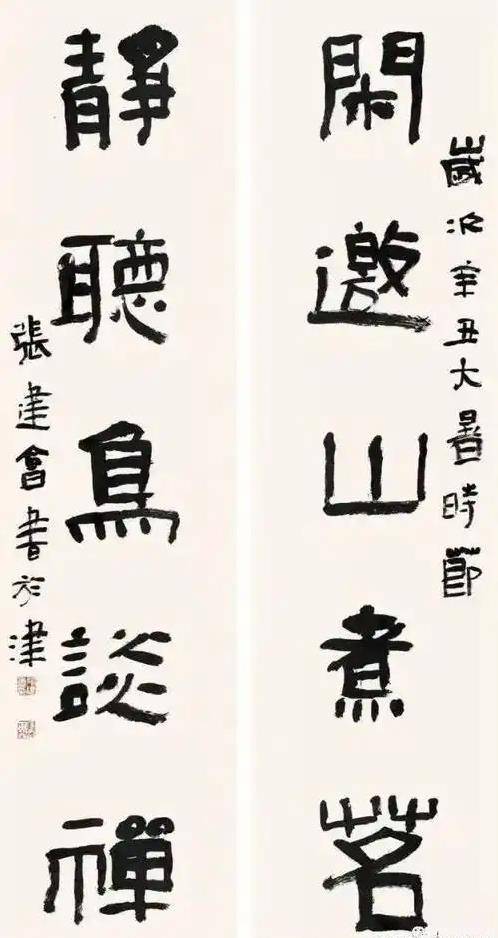 歲次辛丑大暑時節
閑邀山煮茗
靜聽鳥談禪
張建會書於津